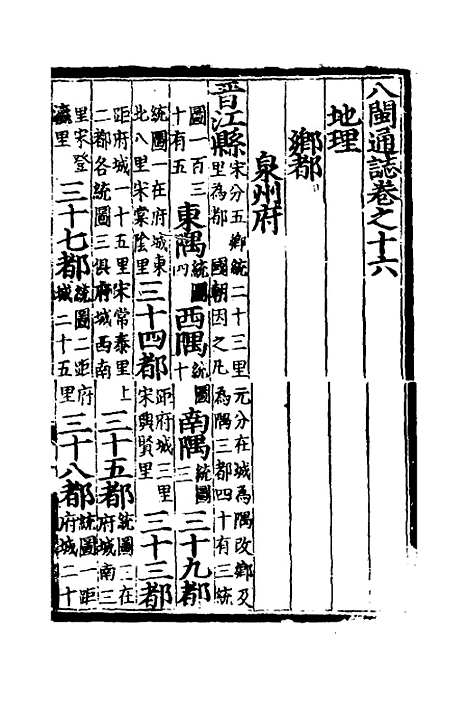 八閩通誌卷之十六
地理
鄉都
泉州府
晉江縣宋分五鄉統二十三里元分在城為隅改鄉及里為都 國朝因之凡為隅三都四十有三統
圖一百三十有五 東隅統圖四 西隅統圖十 南隅統圖三 三十九都
統圖一在府城東北八里宋棠陰里 三十四都距府城三里宋興賢里 三十三都
距府城一十五里宋常泰里上二都各統圖三俱府城西南 三十五都統圖三在府城南三
里宋登瀛里 三十七都統圖二距府城二十五里 三十八都統圖一距府城二十